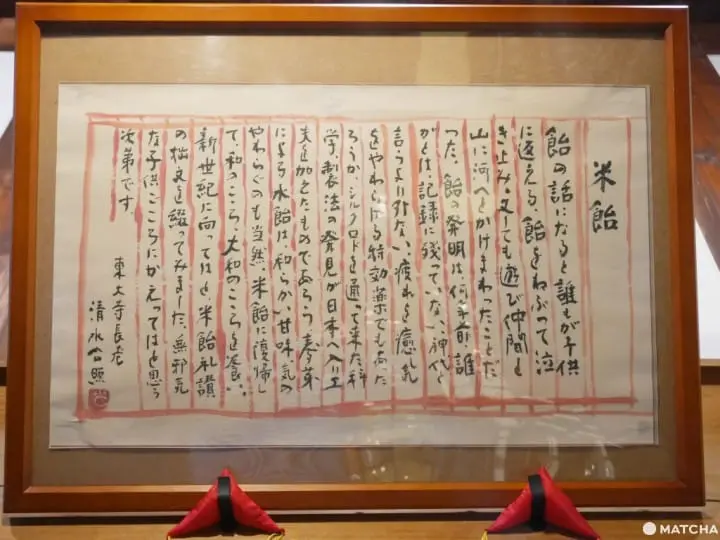 米飴
飴の話になると誰もが子供
に返える、飴をねぶって泣
き止み、又しても遊び仲間と
山に河へとかけまわったことだ
った、飴の発明は何年前、誰
がとは、記録に残っていない、神代と
言うより外ない、疲れを癒し気
をやわらげる特効薬でもあった
ろうか、シルクロドを通って来た科
学、製法の発見が日本へ入り工
夫を加えたものであろう、麦芽
による水飴は和らかい甘味気の
やわらぐのも当然、米飴に復帰し
て、和のこころ、大和のこころを養い、
新世紀に向ってはと、米飴礼讃
の拙文を綴ってみました、無邪気
な子供ごころにかえってはと思う
次第です。
東大寺長老
清水公照
MATCHA